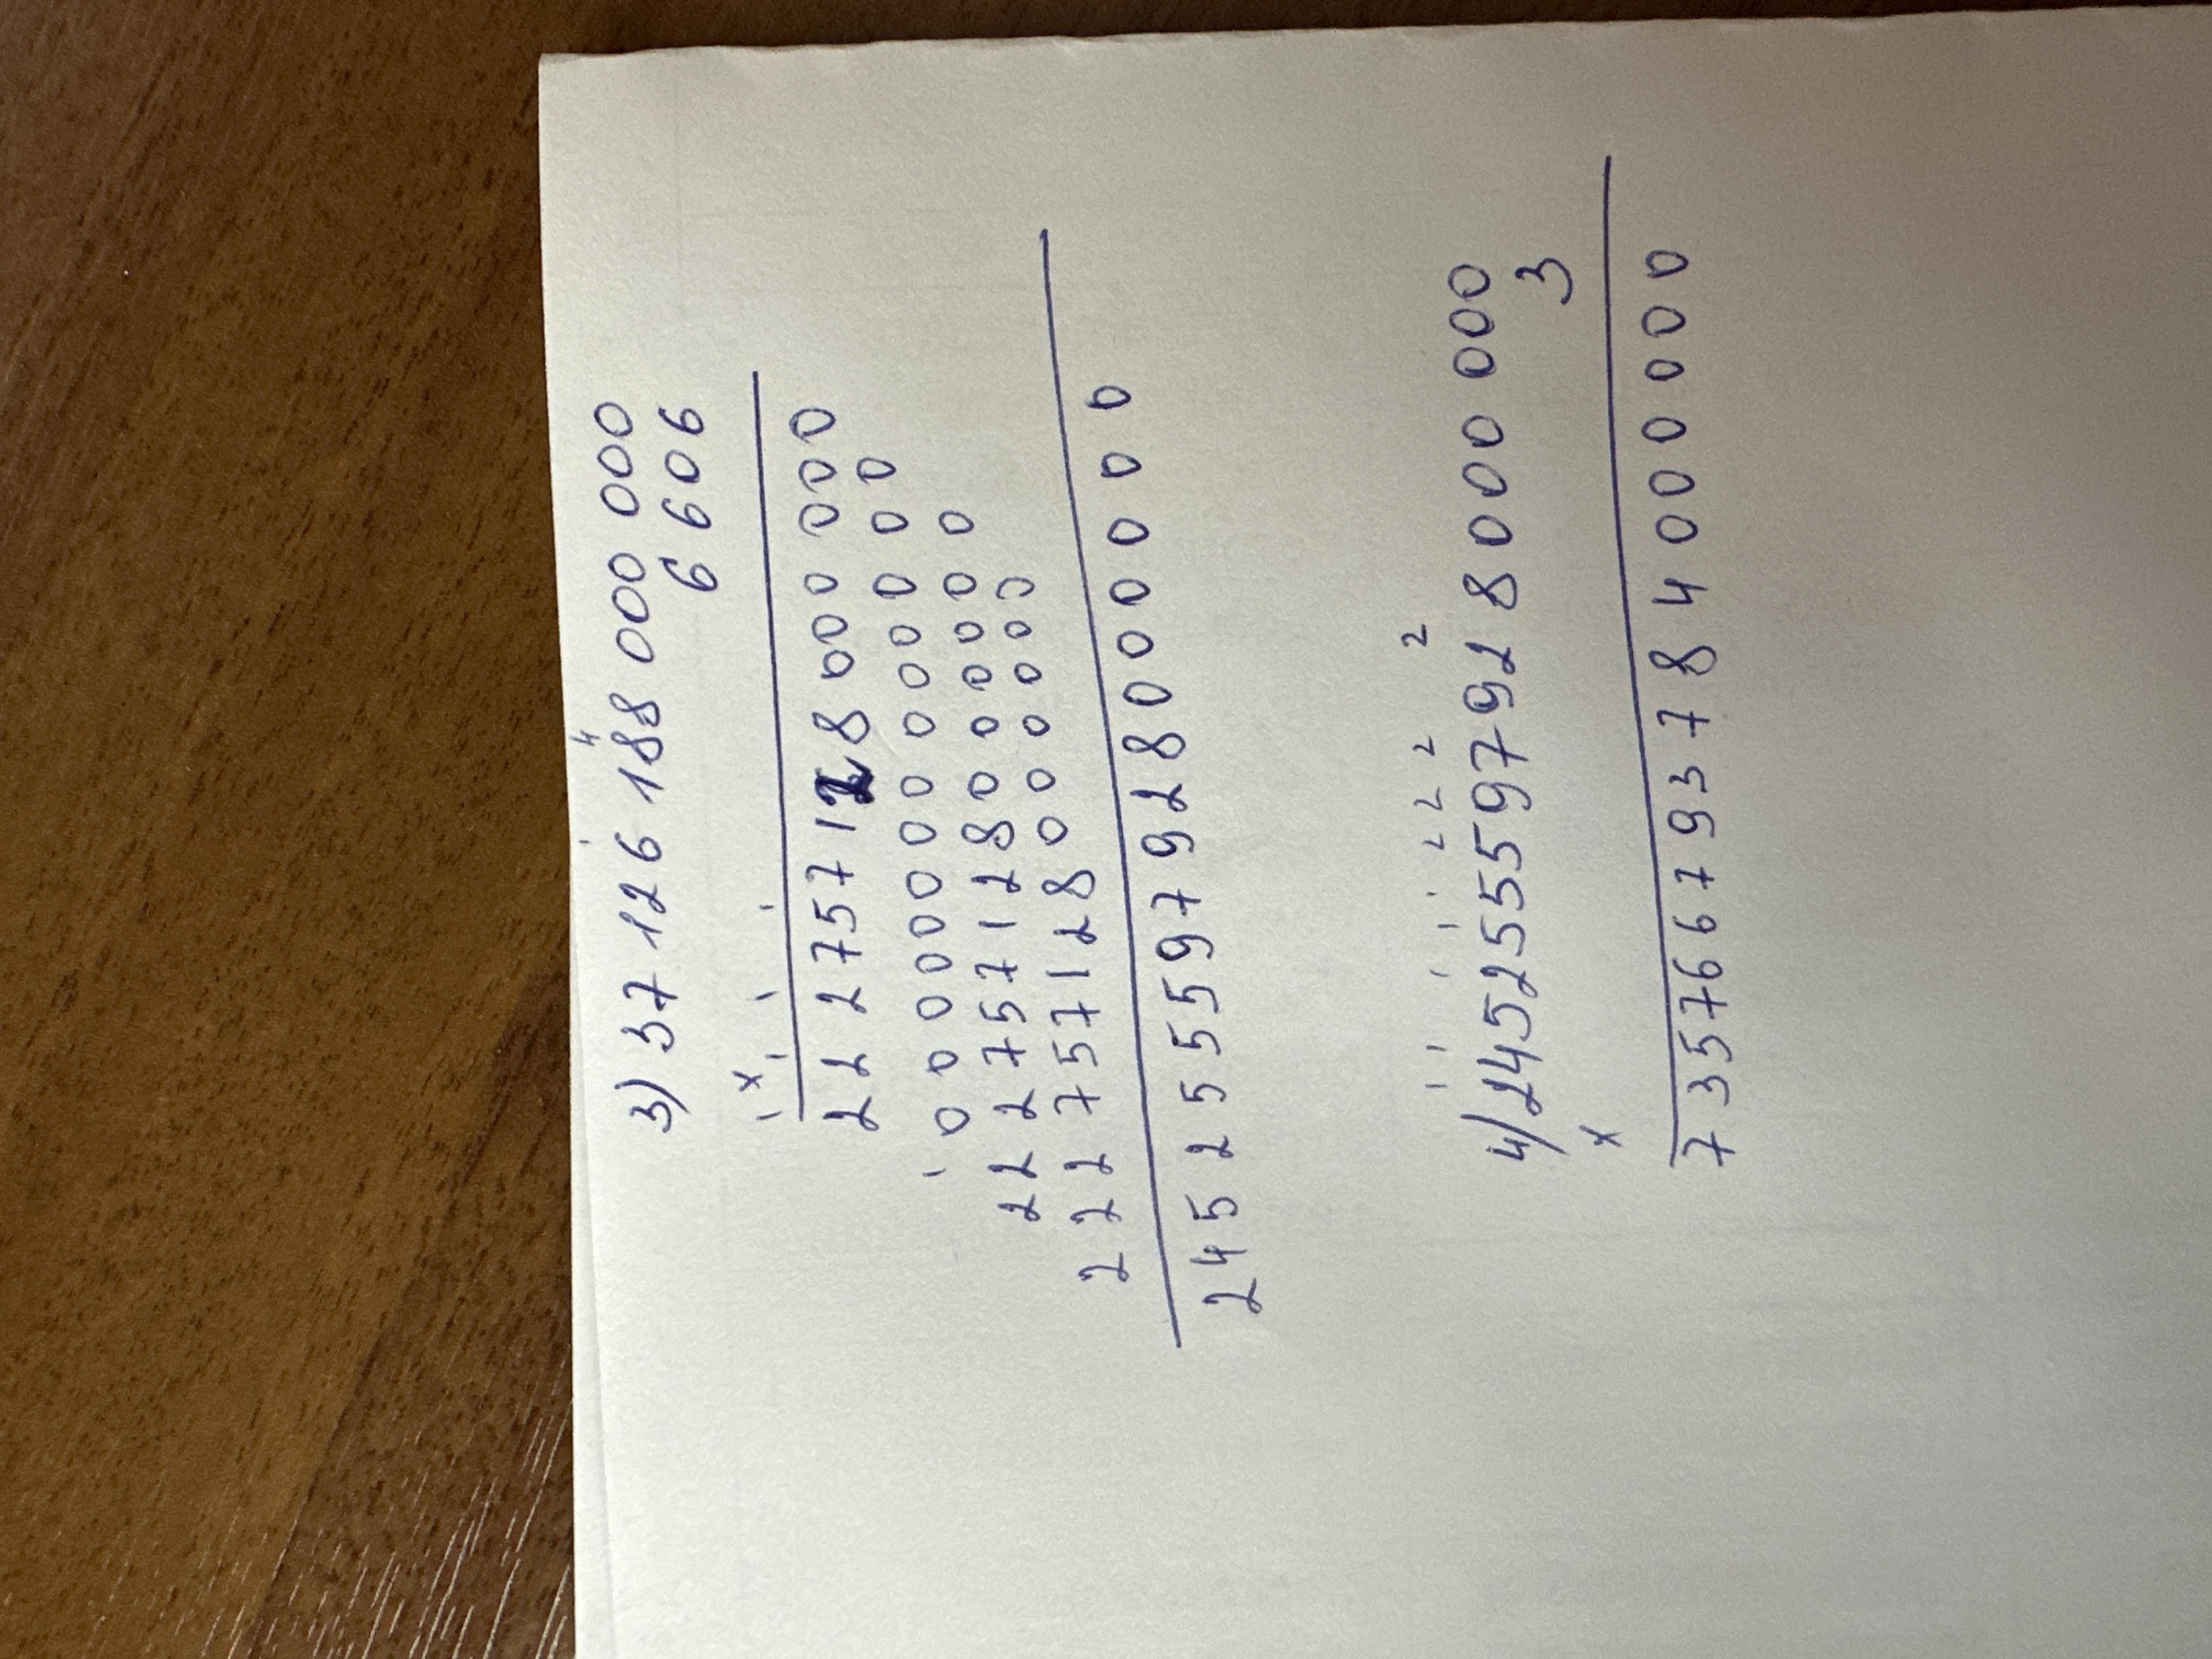 4
3) 37 126 188 000 000
6 606
x
1 1 1 1
2 2 2 7 5 7 1 2 8 000 000
0 0 0 0 0 0 0 0 0 0 0 0 0 0
1
2 2 2 7 5 7 1 2 8 0 0 0 0 0 0
2 2 2 7 5 7 1 2 8 0 0 0 0 0 0
2 4 5 2 5 5 5 9 7 9 2 8 0 0 0 0 0 0
1 1 1 1 1 2 2 2 2
4) 245255597928 000 000
x 3
7 3 5 7 6 6 7 9 3 7 8 4 0 0 0 0 0 0